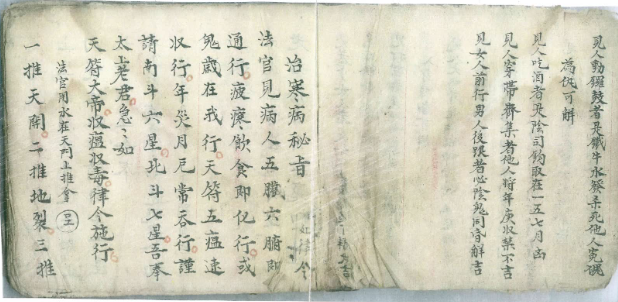 見人動鑼鼓者是鐵牛水發來死他人克魂
為仇可解
見人吃酒者是陰司鈎取在一五七月凶
見人穿帶齊集者他人將年庚收禁不吉
見女人前行男人後跟者必陰鬼同昏解吉
治寒病秘旨
法官見病人五臟六腑即
通行疲瘝飲食即化行或
鬼歲在我行天符五瘟速
收行年災月厄常吞行謹
請南斗六星北斗七星吾奉
太上老君急々如
天符大帝收瘟收毒律令施行
法官用水在天門上推會
一推天開二推地裂三推